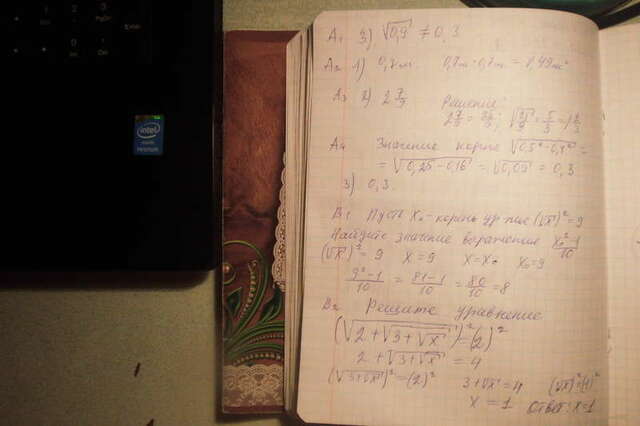 intel
A1 3) √0,9 ≠ 0,3
A2 1) 0,7м. 0,7м · 0,7м = 0,49м²
A3 2) 2 7/9 Решение:
2 7/9 = 25/9; √25/9 = 5/3 = 1 2/3
A4 Значение корня √0,5² - 0,4² =
= √0,25 - 0,16 = √0,09 = 0,3
3) 0,3.
B1 Пусть x₀ - корень (√x)² = 9
Найдите значение выражения x₀² - 1 / 10
(√x)² = 9 x = 9 x = x₀ x₀ = 9
9² - 1 / 10 = 81 - 1 / 10 = 80 / 10 = 8
B2 Решите уравнение
(√2 + √3 + √x)² = (2)²
2 + √3 + √x = 4
(√3 + √x)² = (2)² 3 + √x = 4 (√x)² = (1)²
x = 1 Ответ: x = 1